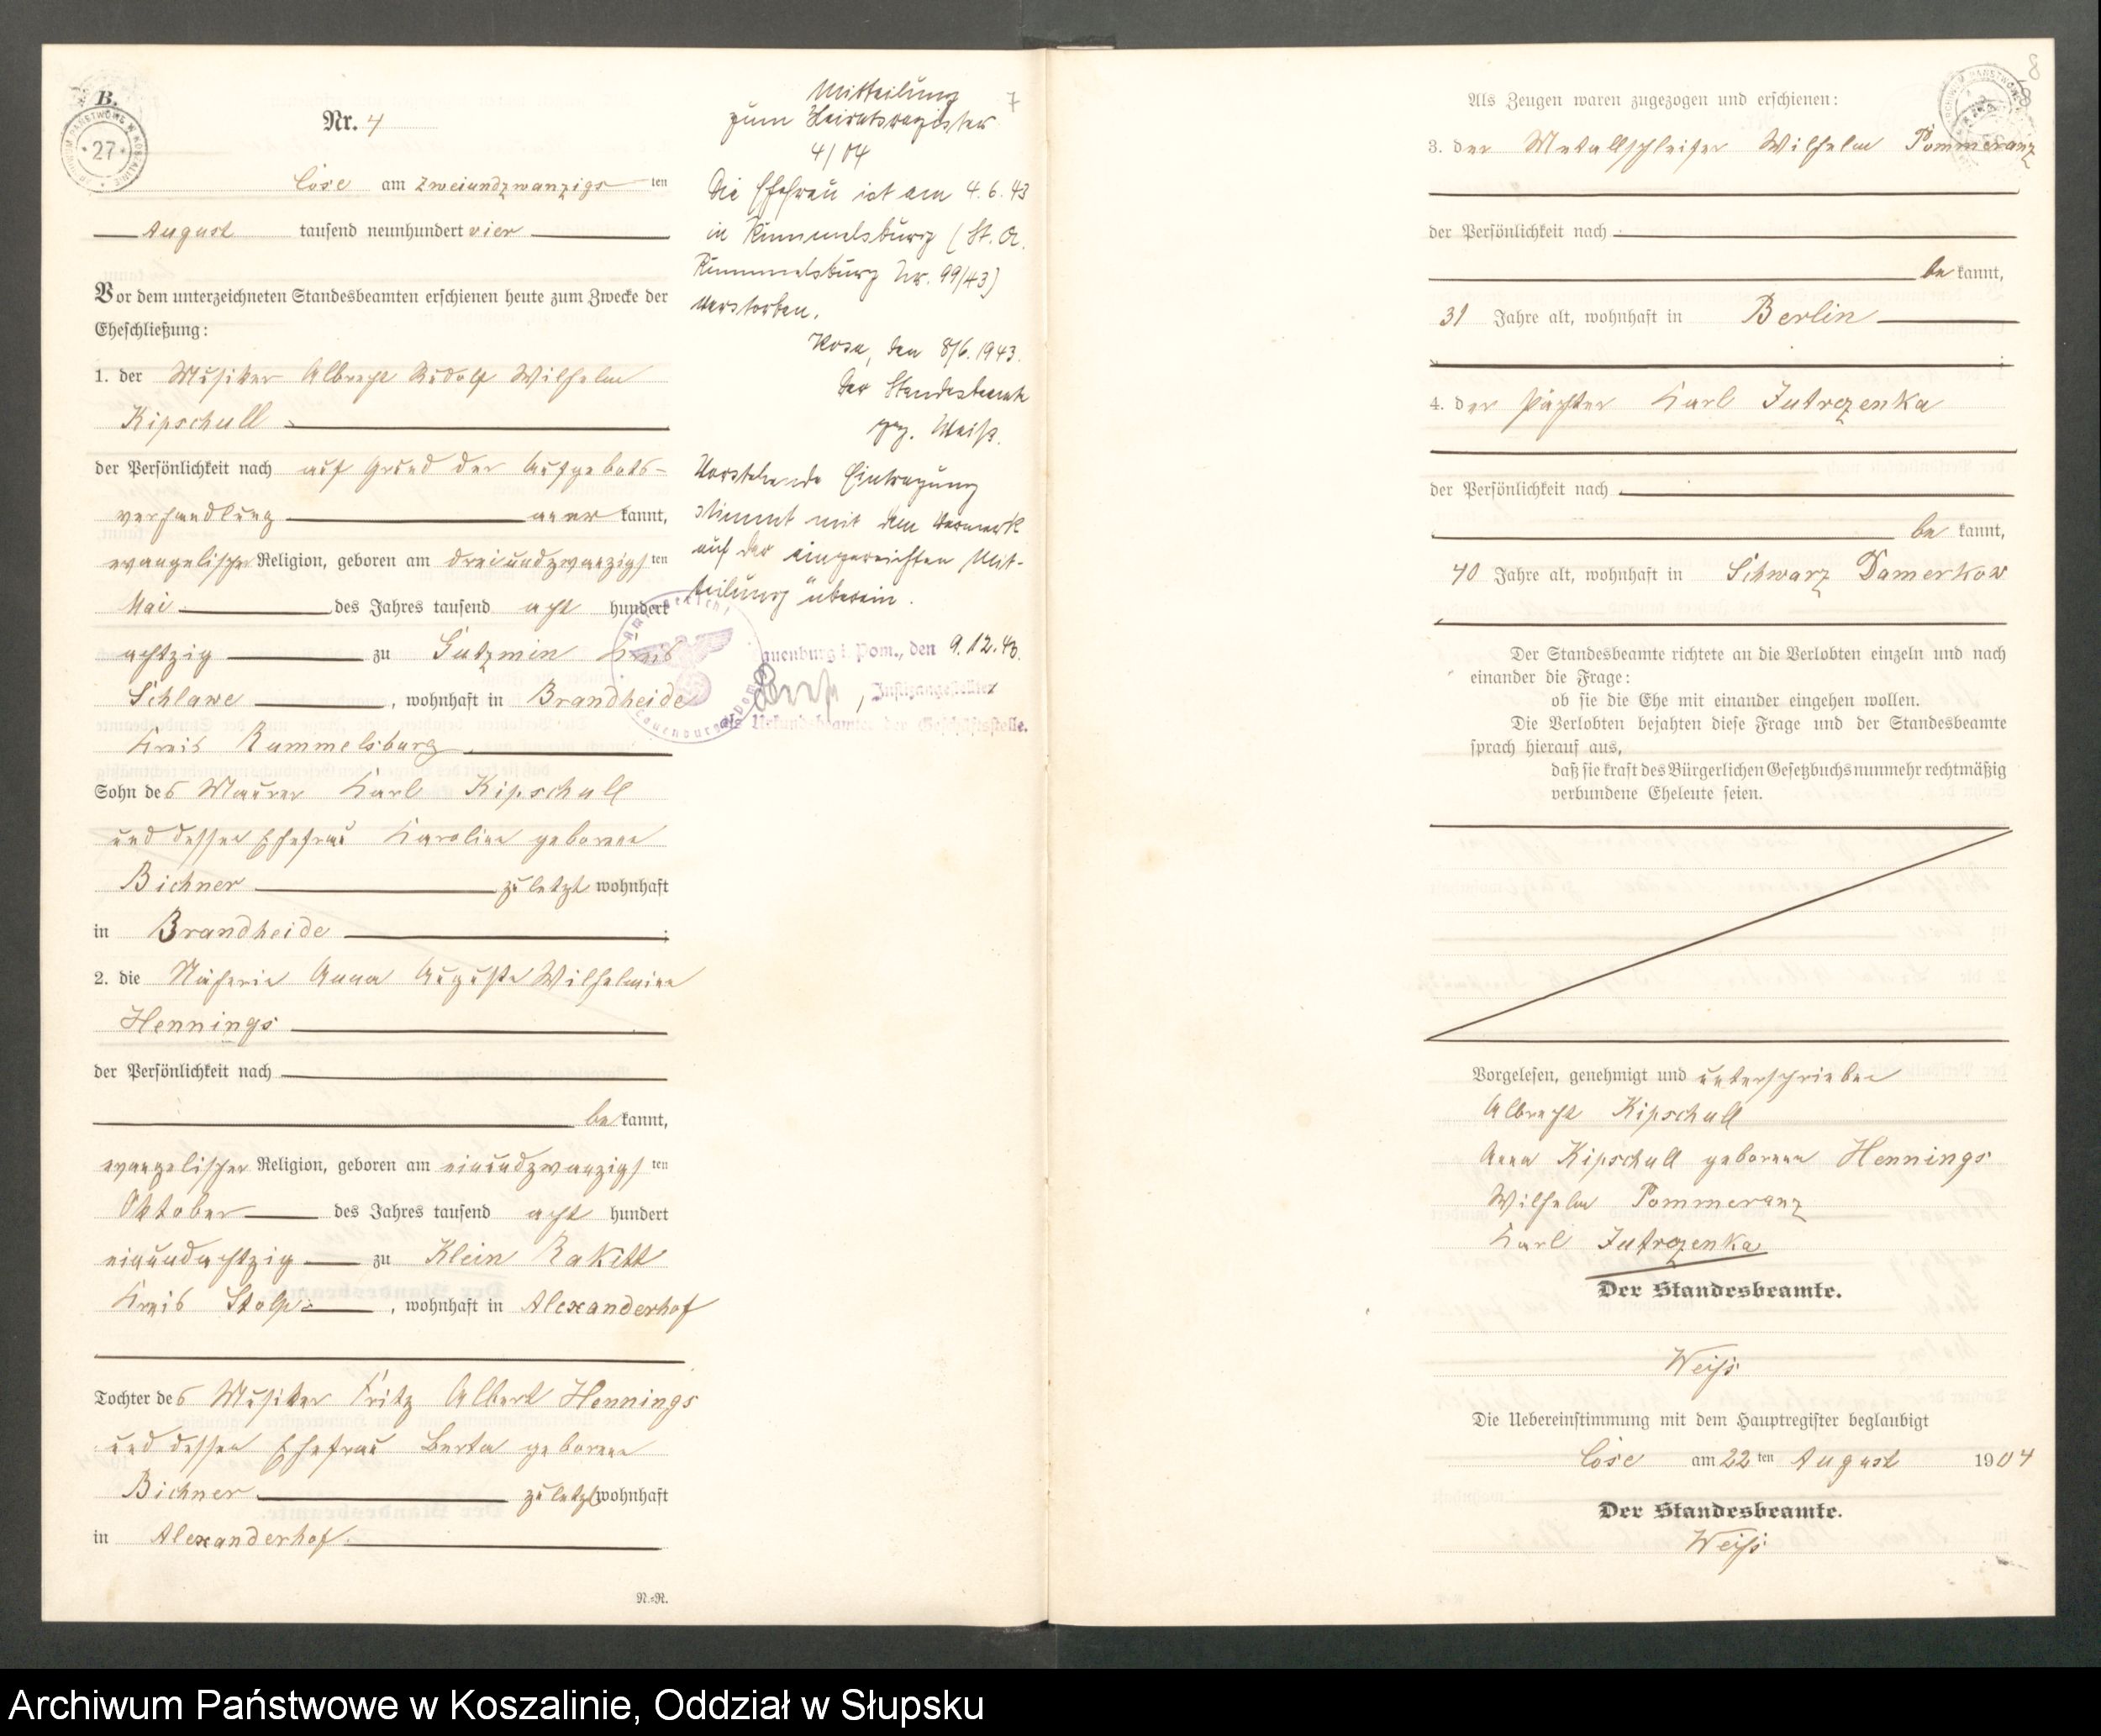 B.
Nr. 4
ARCHIWUM PAŃSTWOWE W KOSZALINIE
27
Cose am zweiundzwanzigsten
August tausend neunhundert vier
Vor dem unterzeichneten Standesbeamten erschienen heute zum Zwecke der
Eheschließung:
1. der Musiker Albrecht Rudolf Wilhelm
Kipschull
der Persönlichkeit nach auf Grund der Aufgebots-
verhandlung anerkannt,
evangelischer Religion, geboren am dreiundzwanzigsten
Mai des Jahres tausend acht hundert
achtzig zu Sutzmin Kreis
Schlawe, wohnhaft in Brandheide
Kreis Rummelsburg
Sohn des Maurer Karl Kipschull
und dessen Ehefrau Karoline geborene
Bichner zuletzt wohnhaft
in Brandheide;
2. die Näherin Anna Auguste Wilhelmine
Hennings
der Persönlichkeit nach
bekannt,
evangelischer Religion, geboren am einundzwanzigsten
Oktober des Jahres tausend acht hundert
einundachtzig zu Klein Rakitt
Kreis Stolp, wohnhaft in Alexanderhof
Tochter des Musiker Fritz Albert Hennings
und dessen Ehefrau Berta geborene
Bichner zuletzt wohnhaft
in Alexanderhof.
N.-R.
7
Mitteilung
zum Heiratsregister
4/04
Die Ehefrau ist am 4.6.43
in Rummelsburg (St. A.
Rummelsburg Nr. 99/43)
verstorben.
Kose, den 8/6. 1943.
Der Standesbeamte
gez. Weiß.
Vorstehende Eintragung
stimmt mit dem Vermerk
auf der eingereichten Mit-
teilung überein.
Lauenburg i. Pom., den 9.12.43.
, Justizangestellter
als Urkundsbeamter der Geschäftsstelle.
8
Als Zeugen waren zugezogen und erschienen:
3. der Metallschleifer Wilhelm Pommeranz
der Persönlichkeit nach
bekannt,
31 Jahre alt, wohnhaft in Berlin
;
4. der Pächter Karl Jutrozenka
der Persönlichkeit nach
bekannt,
40 Jahre alt, wohnhaft in Schwarz Damerkow
Der Standesbeamte richtete an die Verlobten einzeln und nach
einander die Frage:
ob sie die Ehe mit einander eingehen wollen.
Die Verlobten bejahten diese Frage und der Standesbeamte
sprach hierauf aus,
daß sie kraft des Bürgerlichen Gesetzbuchs nunmehr rechtmäßig
verbundene Eheleute seien.
Vorgelesen, genehmigt und unterschrieben
Albrecht Kipschull
Anna Kipschull geborene Hennings
Wilhelm Pommeranz
Karl Jutrozenka
Der Standesbeamte.
Weiß
Die Uebereinstimmung mit dem Hauptregister beglaubigt
Cose am 22ten August 1904
Der Standesbeamte.
Weiß
Archiwum Państwowe w Koszalinie, Oddział w Słupsku